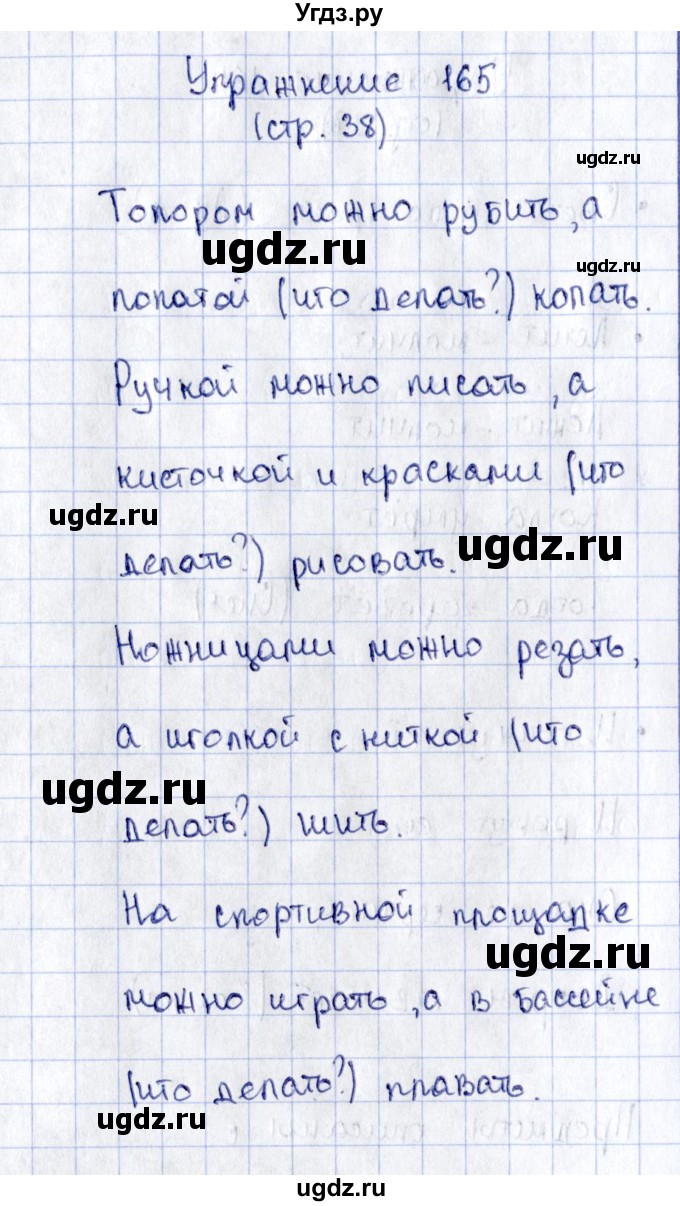 Угдз.ру
Упражнение 165
(стр. 38)
ugdz.ru
Топором можно рубить, а
ugdz.ru
ugdz.ru
лопатой (что делать?) копать.
Ручкой можно писать, а
кисточкой и красками (что
ugdz.ru
ugdz.ru
делать?) рисовать.
Ножницами можно резать,
а иголкой с ниткой (что
ugdz.ru
делать?) шить.
На спортивной площадке
ugdz.ru
можно играть, а в бассейне
(что делать?) плавать.
ugdz.ru
ugdz.ru